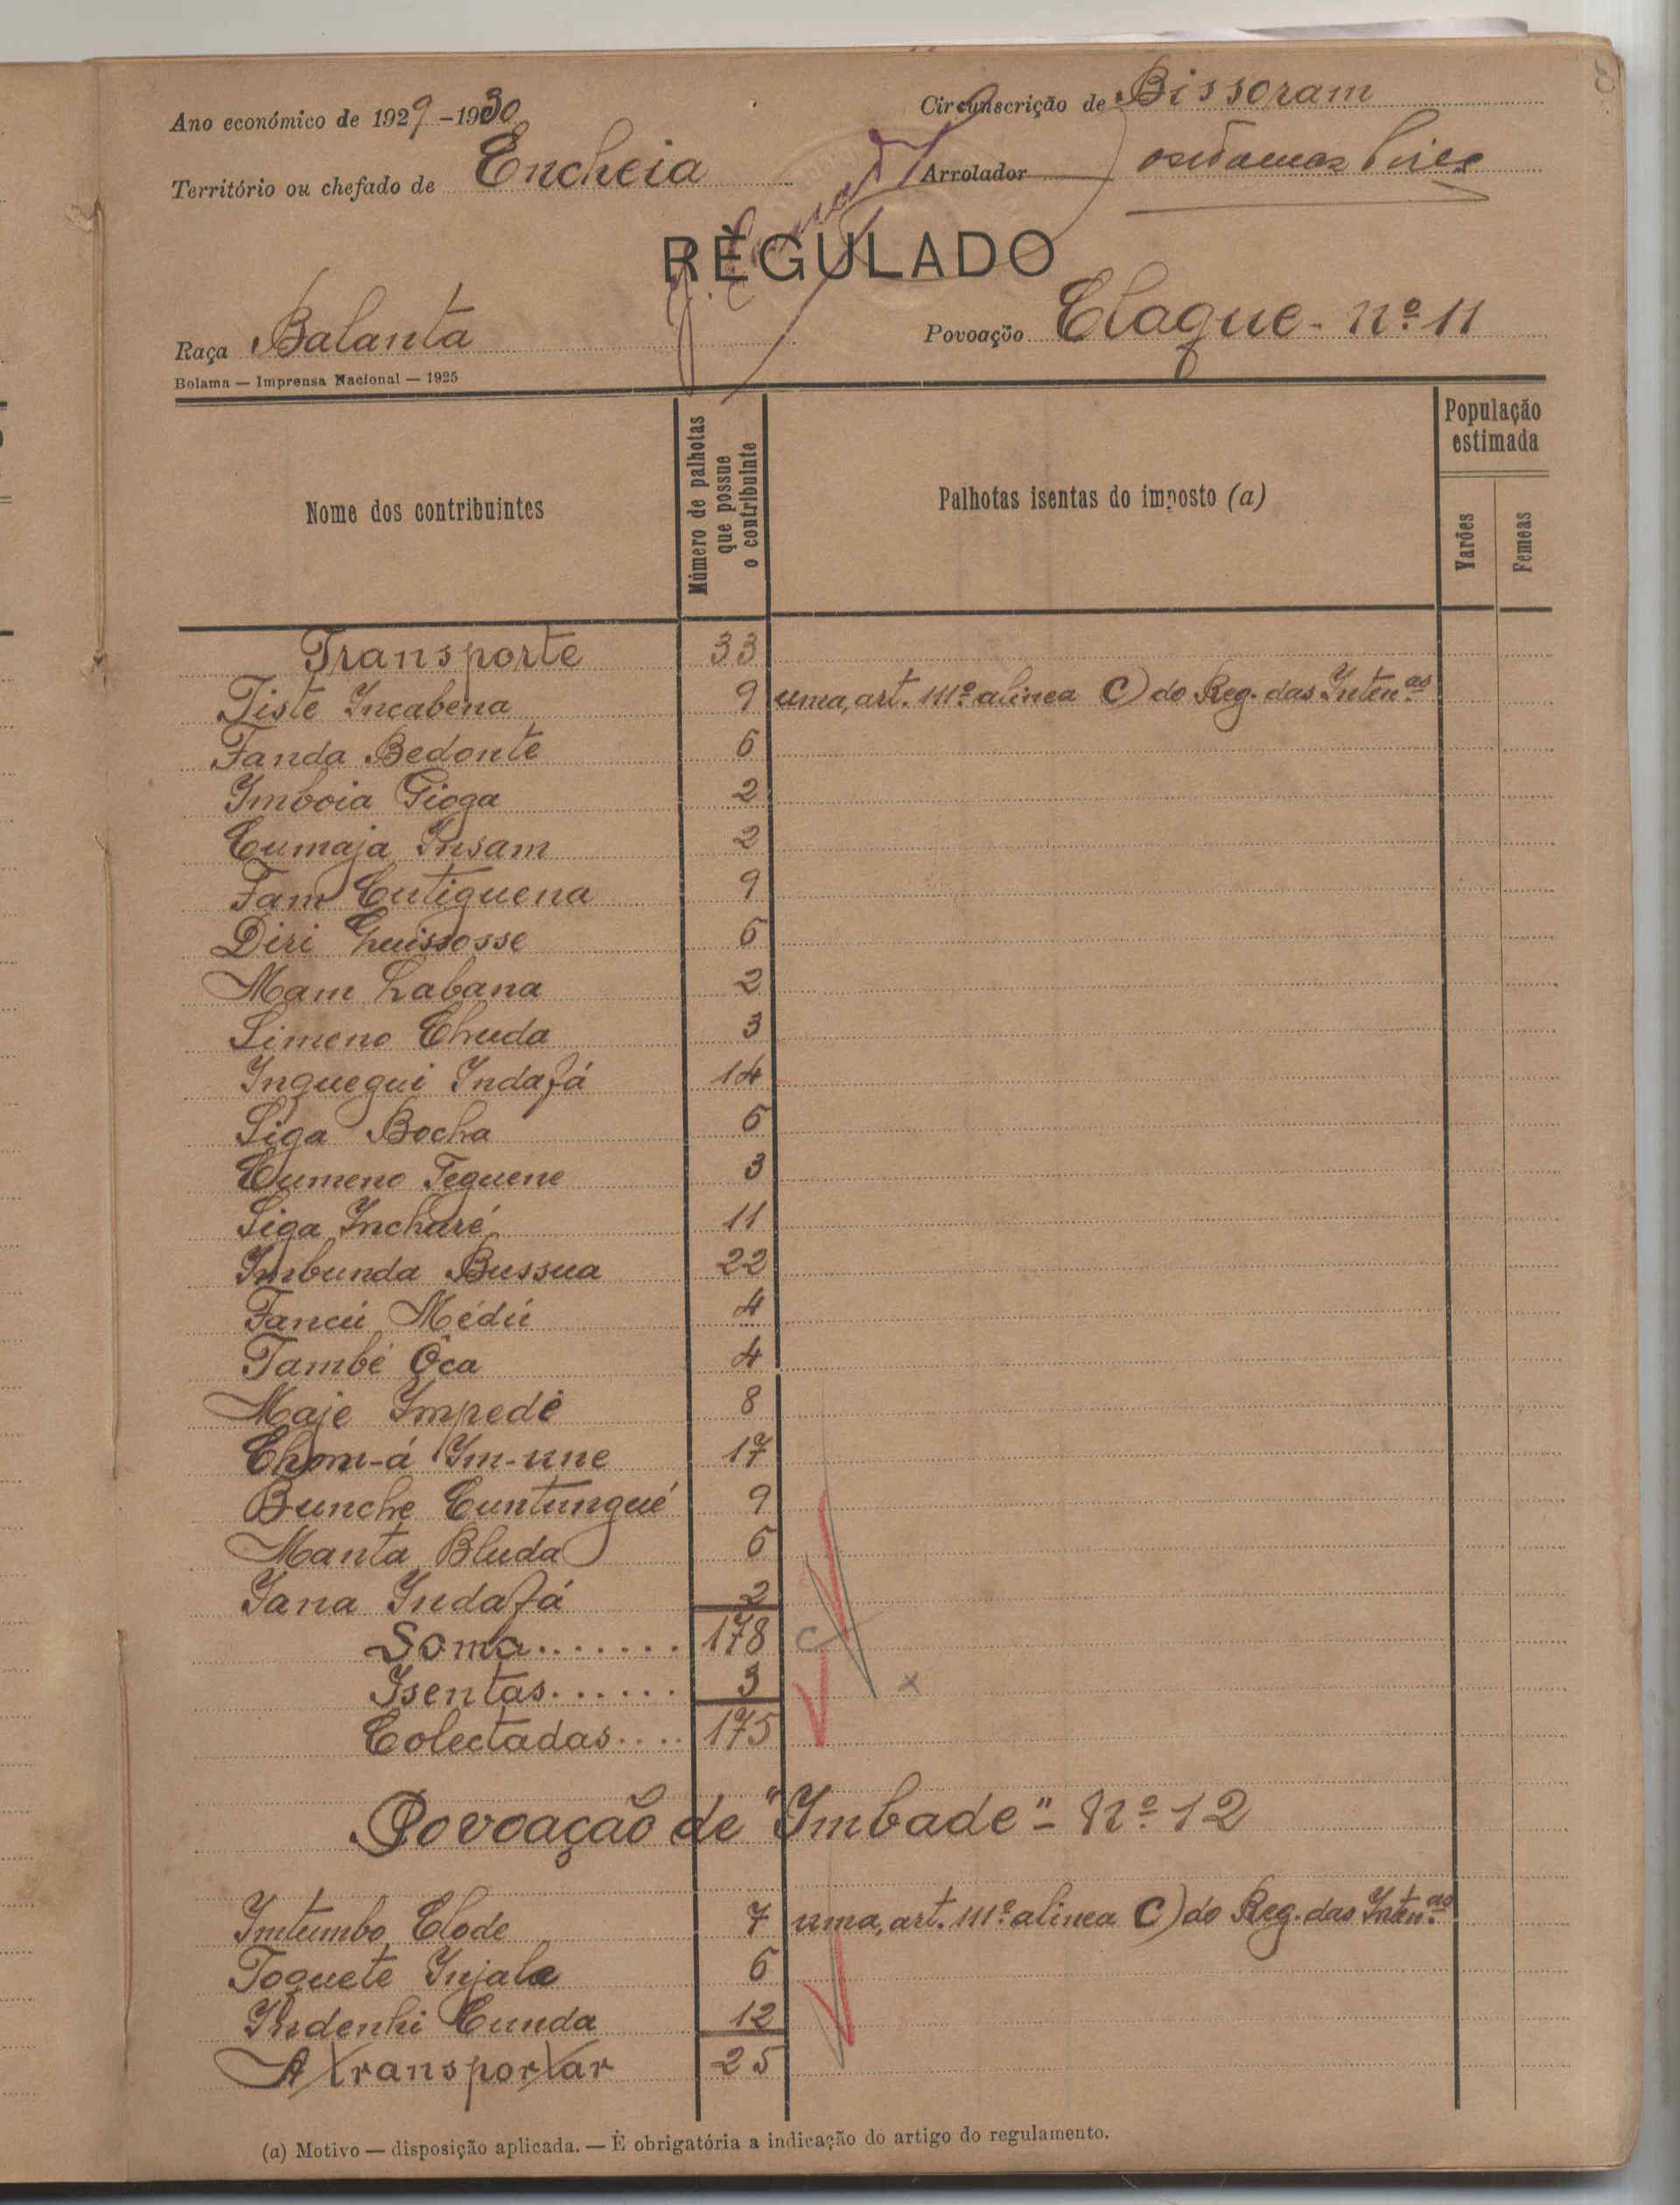 Ano económico de 1929-1930
Circunscrição de Bissoram
Território ou chefado de Encheia
Arrolador
REGULADO
Raça Balanta
Povoação Claque - nº 11
Bolama — Imprensa Nacional — 1925
Nome dos contribuintes
Número de palhotas que possue o contribuinte
Palhotas isentas do imposto (a)
População estimada
Varões
Femeas
Transporte 33
Tiste Incabena 9 uma, art. 111º alinea C) do Reg. das Inten.as
Fanda Bedonte 6
Imboia Gioga 2
Cumaja Insam 2
Fam Cutiguena 9
Diri Guissosse 6
Mam Labana 2
Simeno Chuda 3
Inguegui Indafá 14
Siga Bocha 6
Cumeno Teguene 3
Siga Incharé 11
Imbunda Bussua 22
Fancú Médú 4
També Oca 4
Maje Impedé 8
Chom-á Im-une 17
Bunche Cuntungué 9
Manta Bluda 6
Iana Indafá 2
Soma....... 178
Isentas...... 3
Colectadas.... 175
Povoação de "Imbade" - Nº 12
Imtumbo Clode 7 uma, art. 111º alinea C) do Reg. das Inten.as
Toquete Injale 6
Indenhi Cunda 12
A transportar 25
(a) Motivo — disposição aplicada. — É obrigatória a indicação do artigo do regulamento.